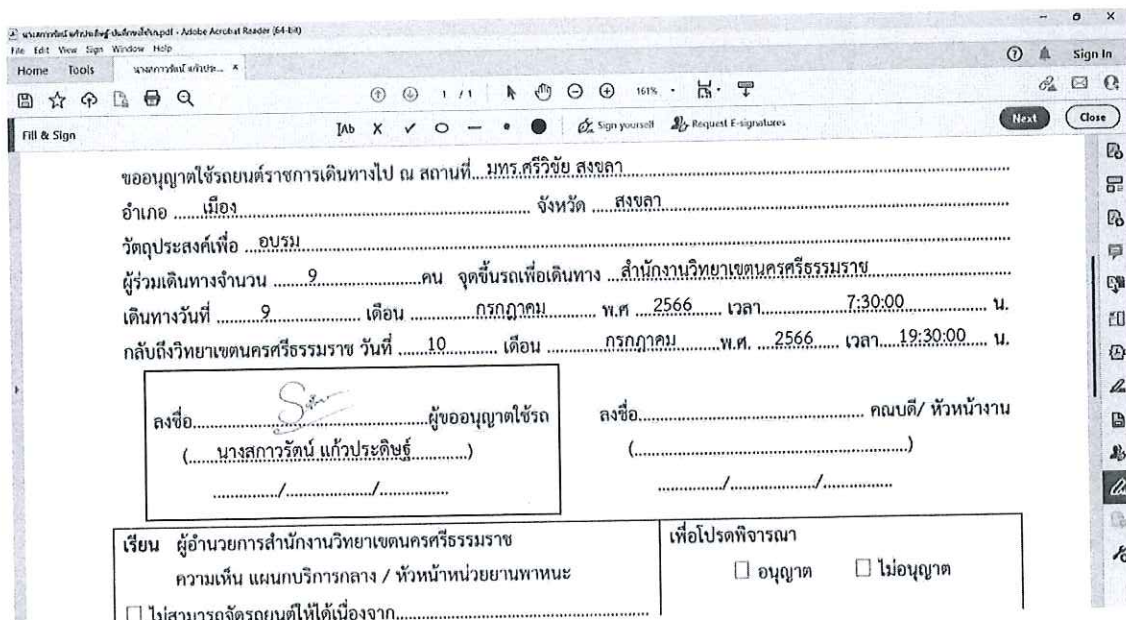 นางสภาวรัตน์ แก้วประดิษฐ์ บันทึกขอใช้รถ.pdf - Adobe Acrobat Reader (64-bit)
File Edit View Sign Window Help
Home Tools นางสภาวรัตน์ แก้วประ... × Sign In
1 / 1 161%
Fill & Sign Sign yourself Request E-signatures Next Close
ขออนุญาตใช้รถยนต์ราชการเดินทางไป ณ สถานที่...มทร.ศรีวิชัย สงขลา
อำเภอ ......เมือง...... จังหวัด ......สงขลา
วัตถุประสงค์เพื่อ ...อบรม
ผู้ร่วมเดินทางจำนวน ......9......คน จุดขึ้นรถเพื่อเดินทาง ...สำนักงานวิทยาเขตนครศรีธรรมราช
เดินทางวันที่ ......9...... เดือน ......กรกฎาคม...... พ.ศ ...2566...... เวลา......7:30:00...... น.
กลับถึงวิทยาเขตนครศรีธรรมราช วันที่ ......10...... เดือน ......กรกฎาคม......พ.ศ. ....2566...... เวลา...19:30:00..... น.
ลงชื่อ......ผู้ขออนุญาตใช้รถ ลงชื่อ...... คณบดี/ หัวหน้างาน
(......นางสภาวรัตน์ แก้วประดิษฐ์......) (......)
....../....../...... ....../....../......
เรียน ผู้อำนวยการสำนักงานวิทยาเขตนครศรีธรรมราช เพื่อโปรดพิจารณา
ความเห็น แผนกบริการกลาง / หัวหน้าหน่วยยานพาหนะ ☐ อนุญาต ☐ ไม่อนุญาต
☐ ไม่สามารถจัดรถยนต์ให้ได้เนื่องจาก......